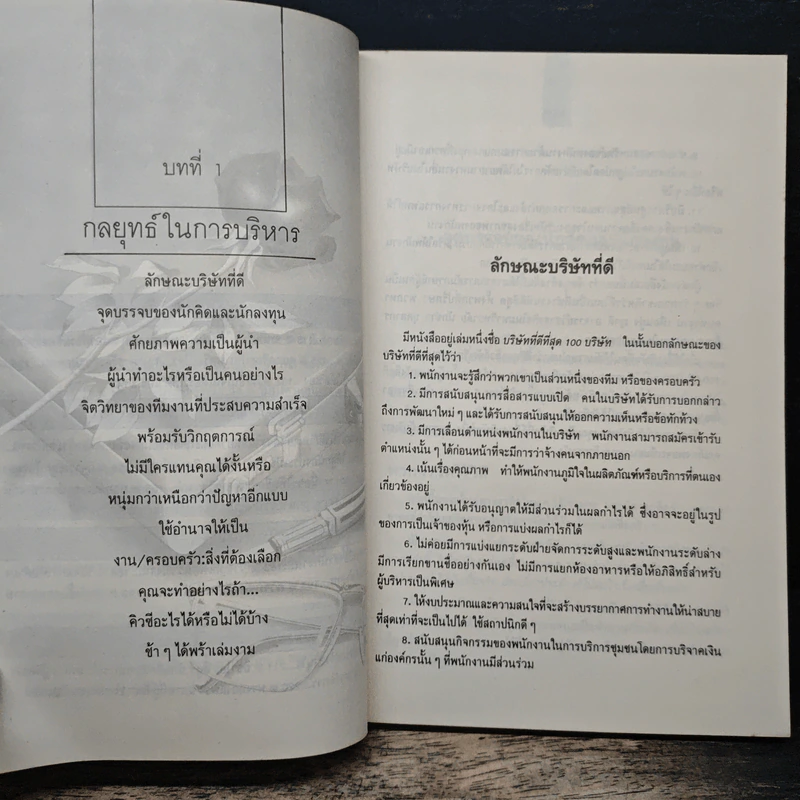 บทที่ 1
กลยุทธ์ในการบริหาร
ลักษณะบริษัทที่ดี
จุดบรรจบของนักคิดและนักลงทุน
ศักยภาพความเป็นผู้นำ
ผู้นำทำอะไรหรือเป็นคนอย่างไร
จิตวิทยาของทีมงานที่ประสบความสำเร็จ
พร้อมรับวิกฤตการณ์
ไม่มีใครแทนคุณได้งั้นหรือ
หนุ่มกว่าเหนือกว่าปัญหาอีกแบบ
ใช้อำนาจให้เป็น
งาน/ครอบครัว:สิ่งที่ต้องเลือก
คุณจะทำอย่างไรถ้า...
คิวซีอะไรได้หรือไม่ได้บ้าง
ช้า ๆ ได้พร้าเล่มงาม
ลักษณะบริษัทที่ดี
มีหนังสืออยู่เล่มหนึ่งชื่อ บริษัทที่ดีที่สุด 100 บริษัท ในนั้นบอกลักษณะของ
บริษัทที่ดีที่สุดไว้ว่า
1. พนักงานจะรู้สึกว่าพวกเขาเป็นส่วนหนึ่งของทีม หรือของครอบครัว
2. มีการสนับสนุนการสื่อสารแบบเปิด คนในบริษัทได้รับการบอกกล่าว
ถึงการพัฒนาใหม่ ๆ และได้รับการสนับสนุนให้ออกความเห็นหรือข้อทักท้วง
3. มีการเลื่อนตำแหน่งพนักงานในบริษัท พนักงานสามารถสมัครเข้ารับ
ตำแหน่งนั้น ๆ ได้ก่อนหน้าที่จะมีการว่าจ้างคนจากภายนอก
4. เน้นเรื่องคุณภาพ ทำให้พนักงานภูมิใจในผลิตภัณฑ์หรือบริการที่ตนเอง
เกี่ยวข้องอยู่
5. พนักงานได้รับอนุญาตให้มีส่วนร่วมในผลกำไรได้ ซึ่งอาจจะอยู่ในรูป
ของการเป็นเจ้าของหุ้น หรือการแบ่งผลกำไรก็ได้
6. ไม่ค่อยมีการแบ่งแยกระดับฝ่ายจัดการระดับสูงและพนักงานระดับล่าง
มีการเรียกขานชื่ออย่างกันเอง ไม่มีการแยกห้องอาหารหรือให้อภิสิทธิ์สำหรับ
ผู้บริหารเป็นพิเศษ
7. ให้งบประมาณและความสนใจที่จะสร้างบรรยากาศการทำงานให้น่าสบาย
ที่สุดเท่าที่จะเป็นไปได้ ใช้สถาปนิกดี ๆ
8. สนับสนุนกิจกรรมของพนักงานในการบริการชุมชนโดยการบริจาคเงิน
แก่องค์กรนั้น ๆ ที่พนักงานมีส่วนร่วม